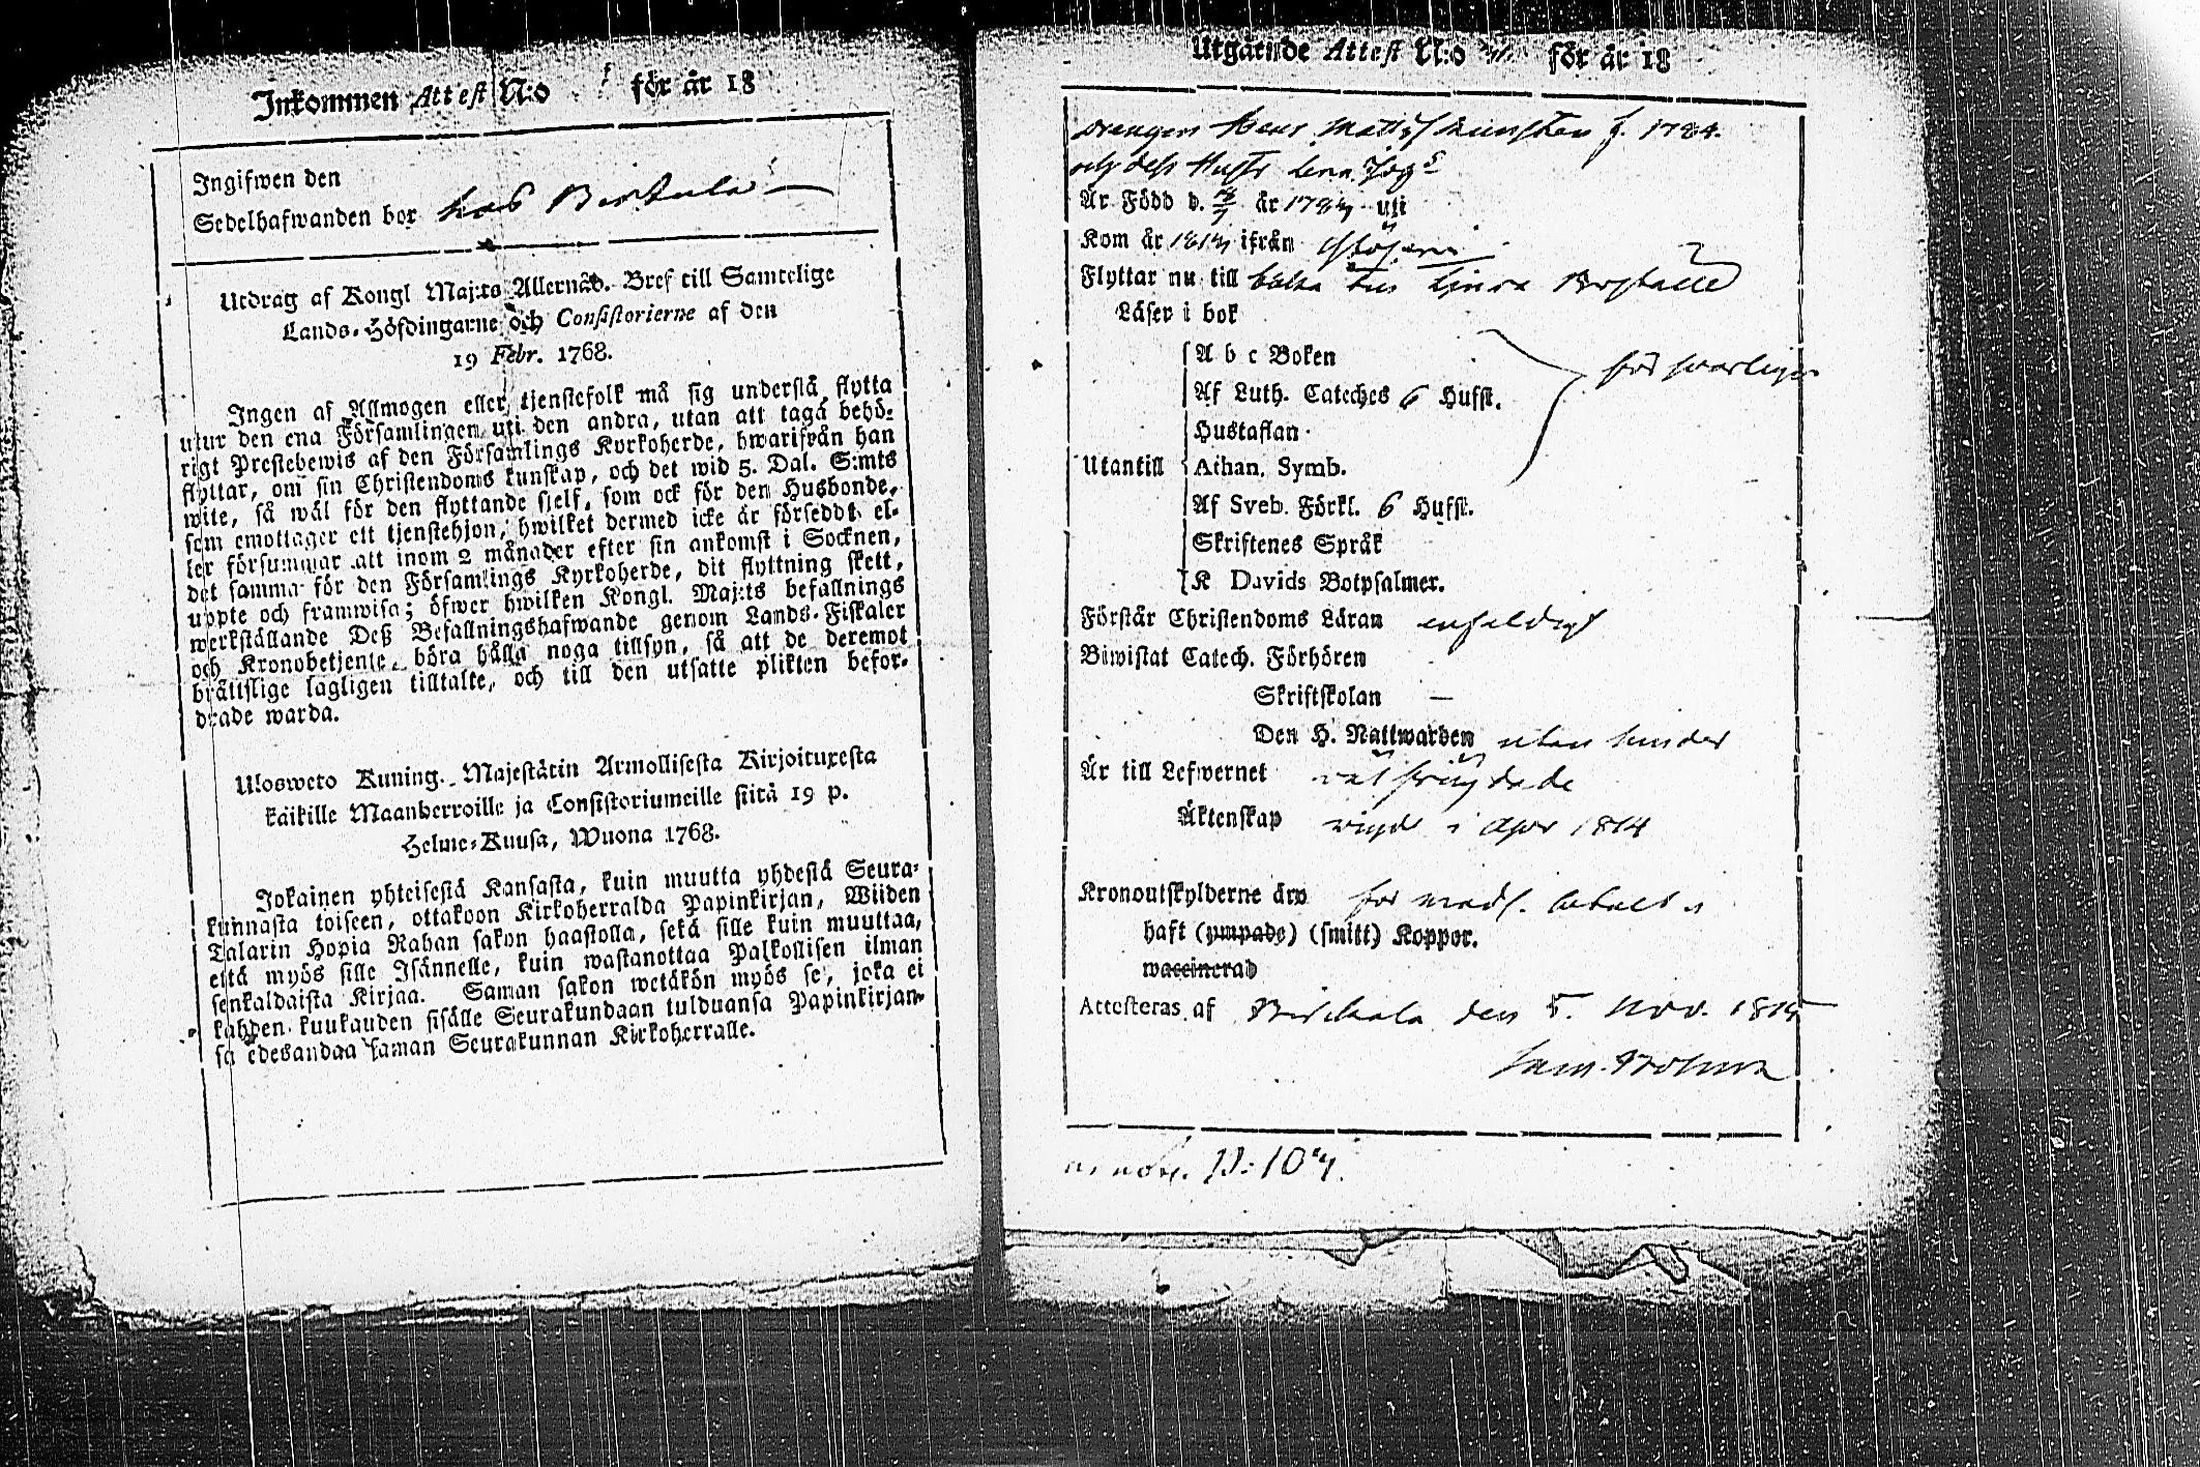 Inkommen Attest N:o för år 18
Ingifwen den
Sedelhafwanden bor hos
Utdrag af Kongl Maj:ts Allernåd. Bref till Samtelige
Lands-Höfdingarne och Consistorierne af den
19 Febr. 1768.
Ingen af Allmogen eller tjenstefolk må sig understå flytta
utur den ena Församlingen uti den andra, utan att taga behö-
rigt Prestebewis af den Församlings Kyrkoherde, hwarifrån han
flyttar, om sin Christendoms kunskap, och det wid 5. Dal. S:mts
wite, så wäl för den flyttande sjelf, som ock för den Husbonde,
som emottager ett tjenstehjon, hwilket dermed icke är förseddt el-
ler försummar att inom 2 månader efter sin ankomst i Socknen,
det samma för den Församlings Kyrkoherde, dit flyttning skett,
uppte och framwisa; öfwer hwilken Kongl. Maj:ts befallnings
werkställande Deß Befallningshafwande genom Lands-Fiskaler
och Kronobetjente böra hålla noga tillsyn, så att de deremot
brättslige lagligen tilltalte, och till den utsatte plikten befor-
drade warda.
Ulosweto Kuning. Majestätin Armollisesta Kirjoituxesta
kaikille Maanherroille ja Consistoriumeille siitä 19 p.
Helme-Kuusa, Wuona 1768.
Jokainen yhteisestä Kansasta, kuin muutta yhdestä Seura-
kunnasta toiseen, ottakoon Kirkoherralda Papinkirjan, Wiiden
Talarin Hopia Rahan sakon haastolla, sekä sille kuin muuttaa,
että myös sille Isännelle, kuin wastanottaa Palkollisen ilman
senkaldaista Kirjaa. Saman sakon wetäkön myös se, joka ei
kahden kuukauden sisälle Seurakundaan tulduansa Papinkirjan-
sa edesandaa saman Seurakunnan Kirkoherralle.
Utgående Attest N:o för år 18
Drengen f. 1784.
och dess Hustr
Är Född d. år uti
Kom år ifrån
Flyttar nu till
Läser i bok
A b c Boken
Af Luth. Cateches 6 Hufst. förswarligen
Hustaflan
Utantill Athan. Symb.
Af Sveb. Förkl. 6 Hufst.
Skriftenes Språk
K Davids Botpsalmer.
Förstår Christendoms Läran enfaldigt
Biwistat Catech. Förhören
Skriftskolan —
Den H. Nattwarden utan hinder
Är till Lefwernet wäl frägdade
Äktenskap wigde i Apr 1814
Kronoutskylderne äro
haft (ympade) (smitt) Koppor.
waccinerad
Attesteras af Birckala den 5. Nov.
N:104.